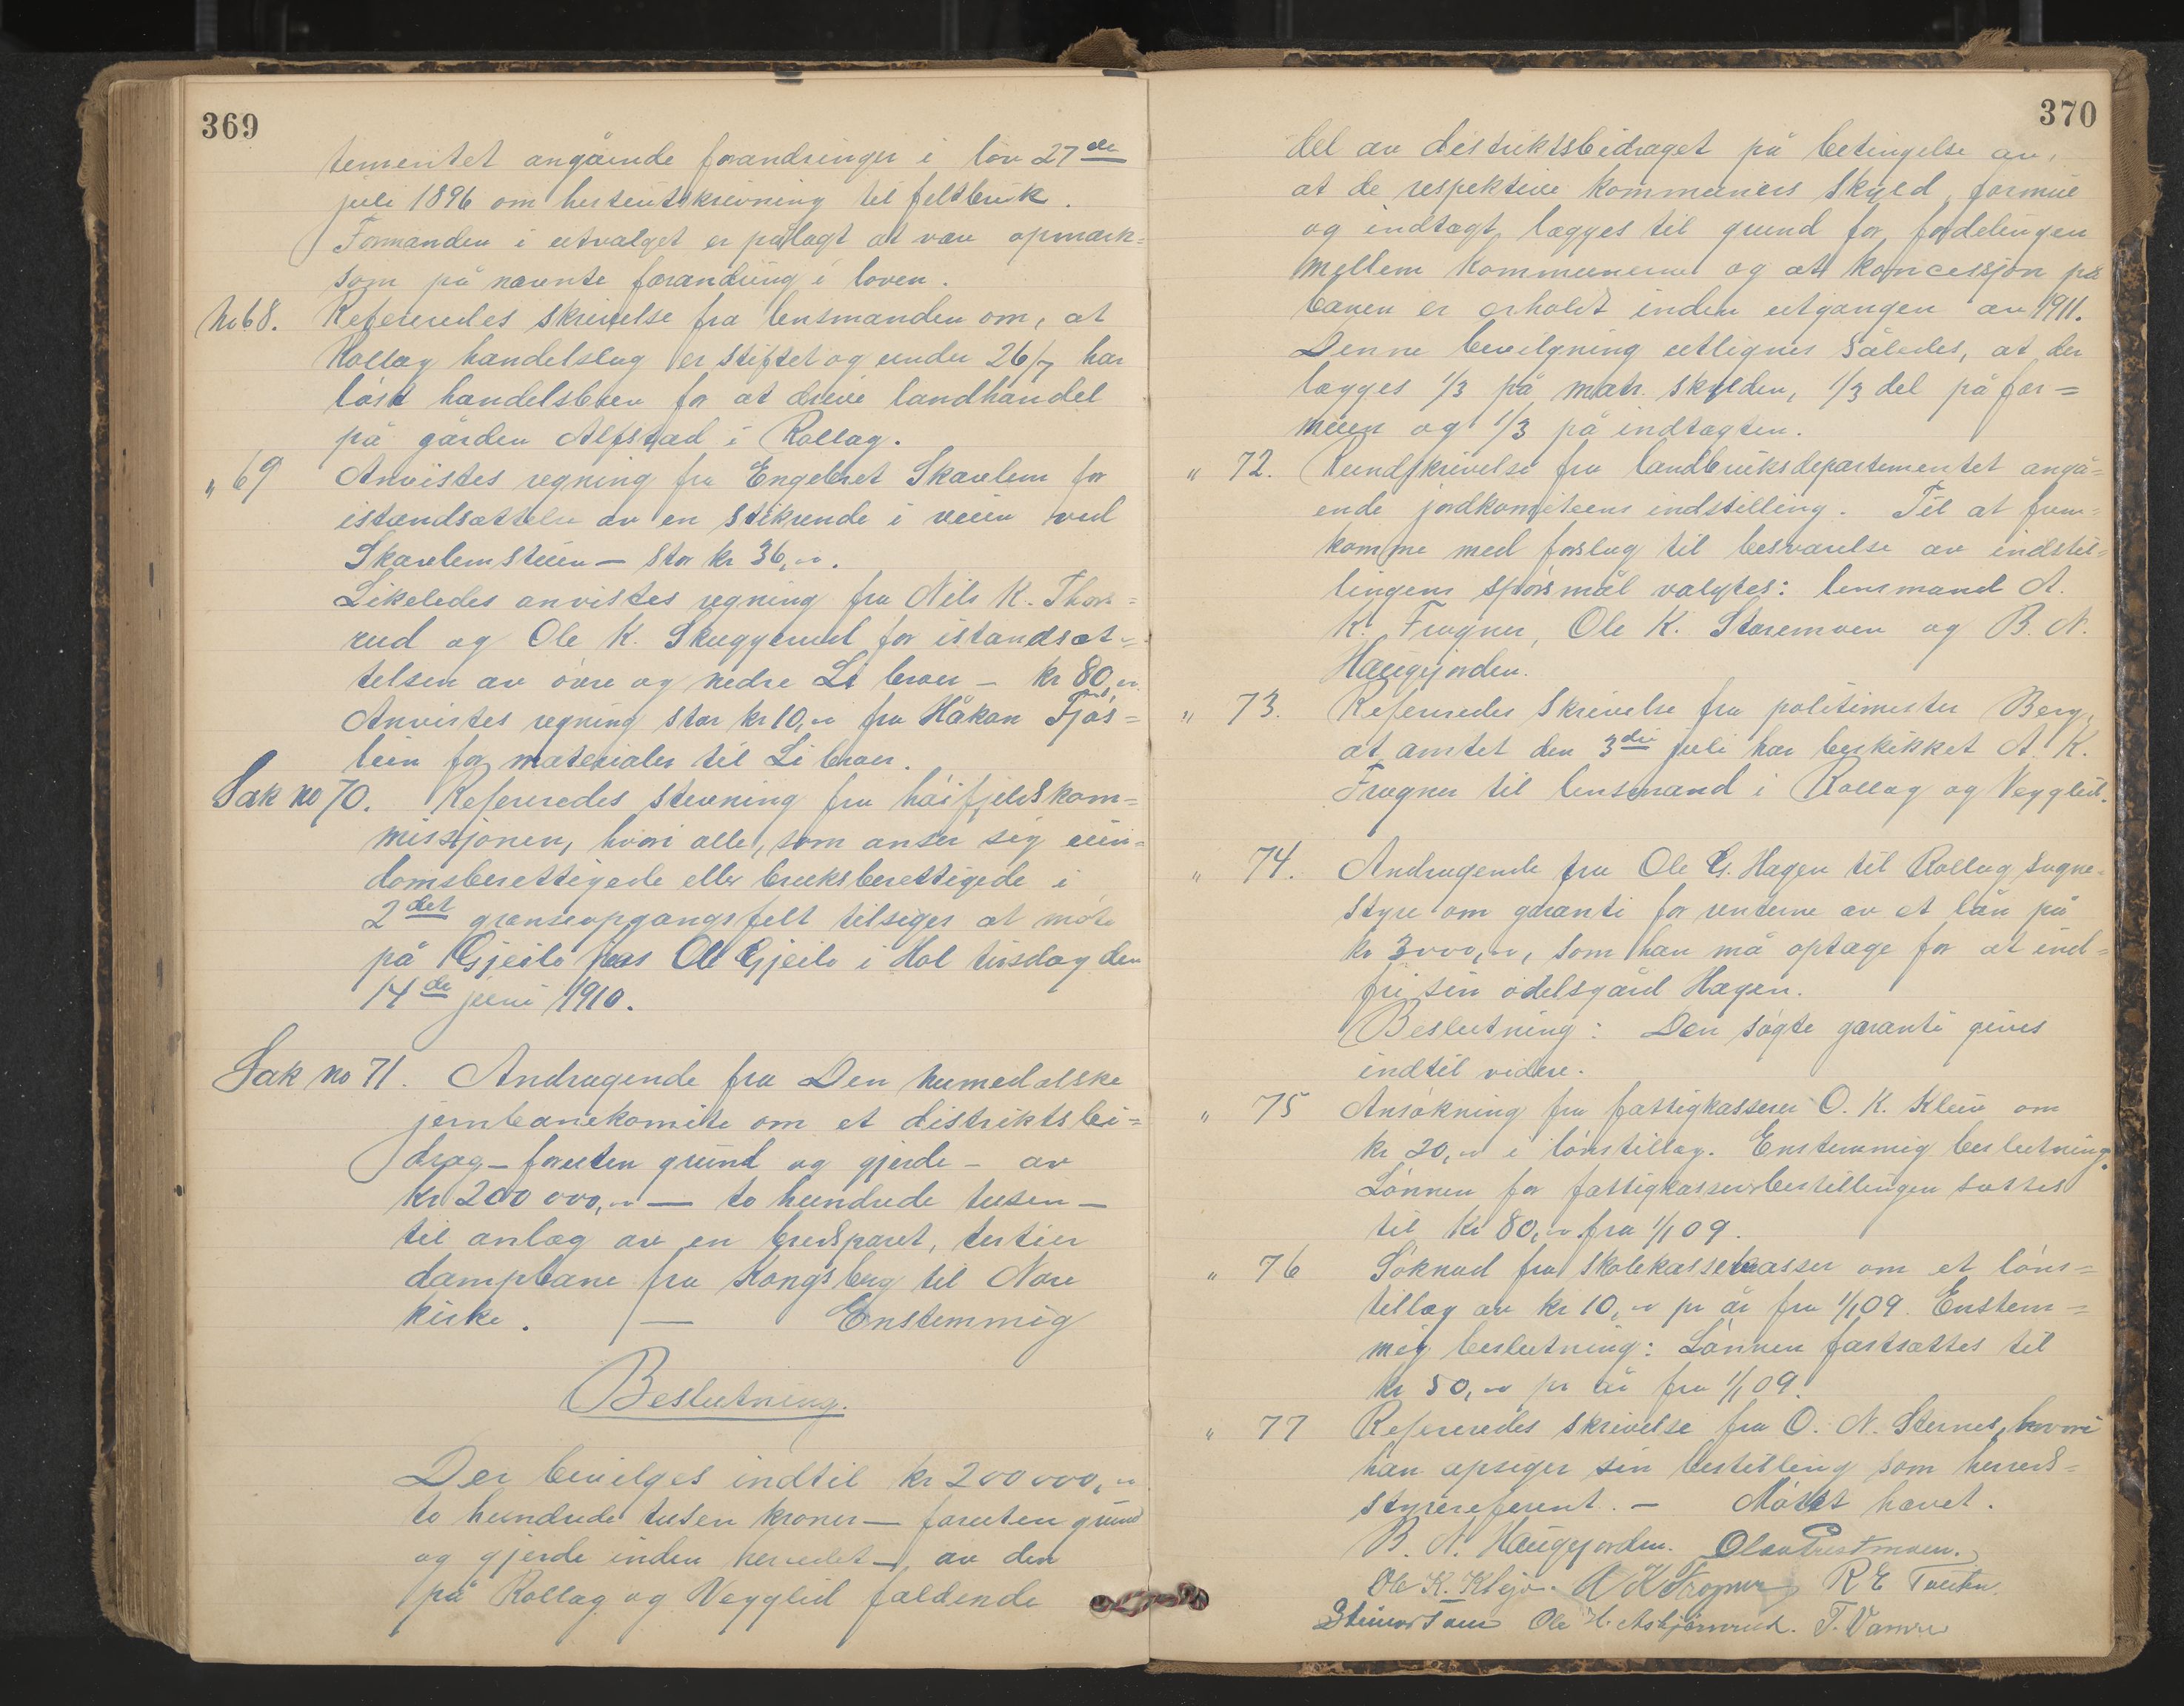 369
tementet angående forandringer i lov 27de
juli 1896 om hesteutskrivning til feltbruk.
Formanden i utvalget er pålagt at være opmerk=
som på nævnte forandring i loven.
No 68. Refereredes skrivelse fra lensmanden om, at
Rollag handelslag er stiftet og under 26/7 har
løst handelsbrev for at drive landhandel
på gården Alfstad i Rollag.
„ 69 Anvistes regning fra Engebret Skavlem for
istandsættelse av en stikrende i veien ved
Skavlemsteien – stor kr 36,00.
Likeledes anvistes regning fra Nils K. Thors=
rud og Ole K. Skuggerud for istandsæt=
telsen av øvre og nedre Li broer – kr 80,00
Anvistes regning stor kr 10,00 fra Håkon Fjøs=
lein for materialer til Li broer.
Sak no 70. Refereredes stevning fra høifjeldskom=
missjonen, hvori alle, som anser sig eien=
domsberettigede eller bruksberettigede i
2det grænseopgangsfelt tilsiges at møte
på Gjeilo hos Ole Gjeilo i Hol tirsdag den
14de juni 1910.
Sak no 71. Andragende fra Den numedalske
jernbanekomite om et distriktsbi=
drag – foruten grund og gjerde – av
kr 200 000,00 — to hundrede tusen –
til anlæg av en bredsporet, tertier
dampbane fra Kongsberg til Nore
kirke. — Enstemmig
Beslutning.
Der bevilges indtil kr 200 000,00
to hundrede tusen kroner – foruten grund
og gjerde inden herredet –, av den
på Rollag og Vegglid faldende
370
del av distriktsbidraget på betingelse av,
at de respektive kommuners skyld, formue
og indtægt lægges til grund for fordelingen
mellem kommunerne og at koncessjon på
banen er erholdt inden utgangen av 1911.
Denne bevilgning utlignes således, at der
lægges 1/3 på matr. skylden, 1/3 del på for=
muen og 1/3 på indtægten.
„ 72. Rundskrivelse fra landbruksdepartementet angå=
ende jordkomiteens indstilling. Til at frem=
komme med forslag til besvarelse av indstil=
lingens spørsmål valgtes: lensmand A.
K. Frogner, Ole K. Storemoen og B. N.
Haugejorden.
„ 73. Refereredes skrivelse fra politimester Berg,
at amtet den 3die juli har beskikket A. K.
Frogner til lensmand i Rollag og Vegglid.
„ 74. Andragende fra Ole G. Hagen til Rollag sogne=
styre om garanti for renterne av et lån på
kr 3000,00, som han må optage for at ind=
fri sin odelsgård Hagen.
Beslutning: Den søgte garanti gives
indtil videre.
„ 75 Ansøkning fra fattigkasserer O. K. Kleiv om
kr 20,00 i lønstillæg. Enstemmig beslutning.
Lønnen for fattigkassererbestillingen sættes
til kr 80,00 fra 1/1 09.
„ 76 Søknad fra skolekassekasser om et løns=
tillæg av kr 10,00 pr år fra 1/1 09. Enstem=
mig beslutning: Lønnen fastsættes til
kr 50,00 pr år fra 1/1 09.
„ 77 Refereredes skrivelse fra O. N. Sternes, hvori
han opsiger sin bestilling som herreds=
styrereferent. – Møtet hævet.
B. N. Haugejorden.
Ole K. Klejv. A K Frogner R E
Ole H. Asbjørnrud.